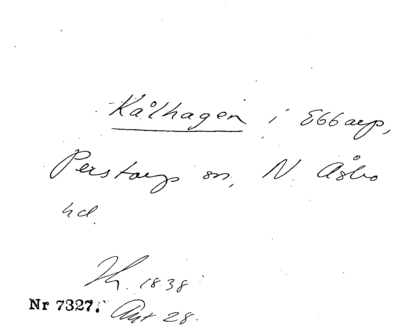 Kålhagen i Ebbarp,
Perstorp sn, N. Åsbo
hd.
1838
Nr 7327. Akt 28.